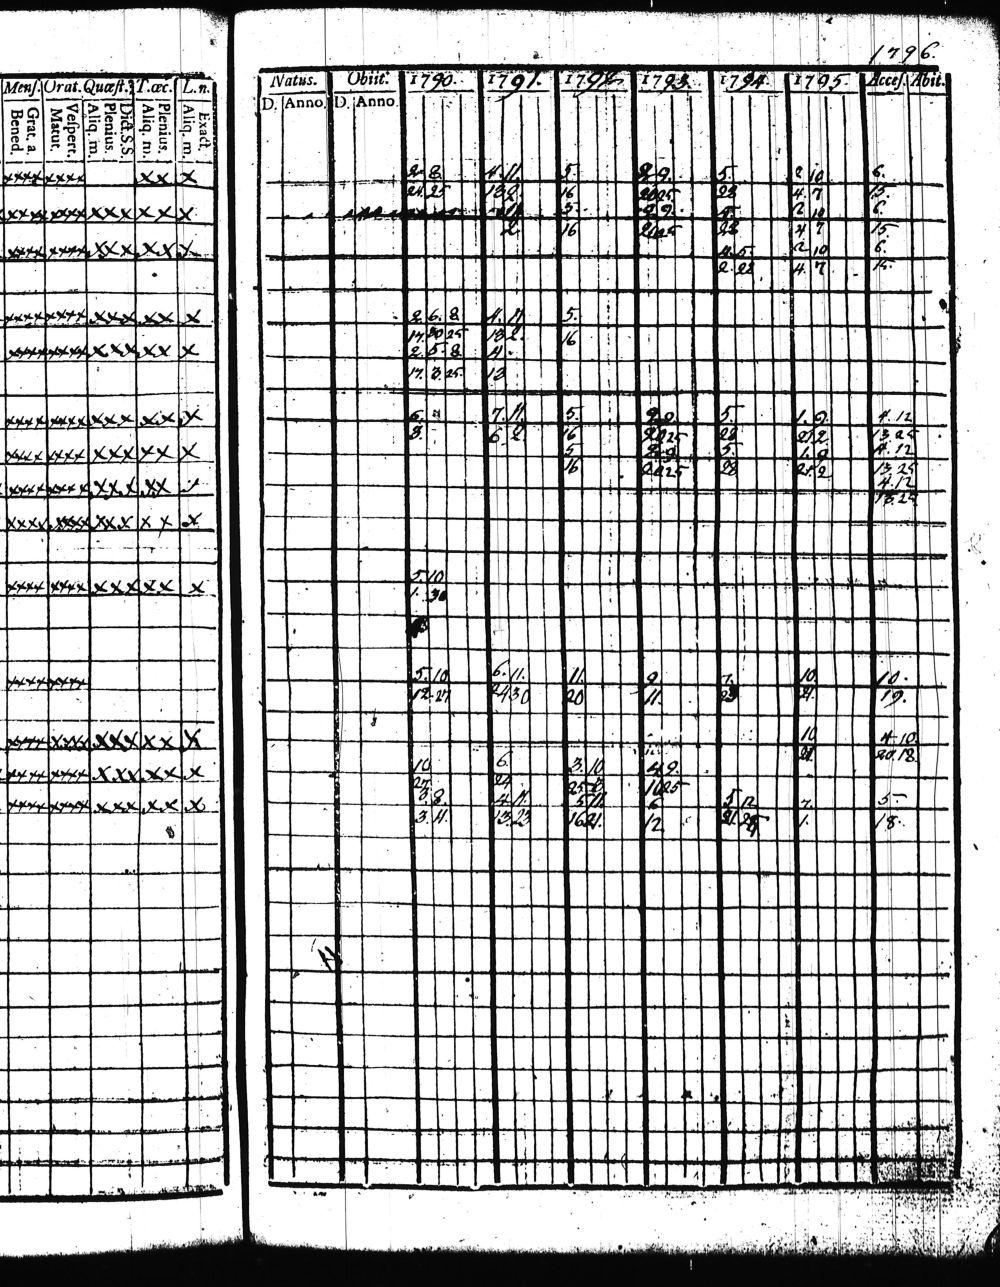 1796.
Menſ. Orat. Quæſt. T.œc. L.n.
Grat. a. Bened. Veſpert. Matut. Dict. S.S. Plenius. Aliq. m. Plenius. Aliq. m. Exact. Aliq. m.
Natus. Obiit. 1790. 1791. 1792 1793. 1794. 1795. Acceſ. Abit.
D. Anno. D. Anno.
xxxx xxxx x x x
2. 8 4. 11. 5. 2 9. 5. 2 10 6.
24. 25 13 2. 16 20 25 28 4 7 15
xxxx xxxx x x x x x x
11 5. 2 9. 5. 2 10 6.
2 16 20 25 28 4 7 15
xxxx xxxx x x x x x x
4. 5. 2 10 6.
2. 28 4. 7 15
xxxx xxxx x x x x x x
2. 6. 8 4. 11 5.
17. 30 25 13 2. 16
xxxx xxxx x x x x x x
2. 5. 8 4.
17. 3. 25 13
xxxx xxxx x x x x x x
6. 7. 11. 5. 2 9. 5. 1. 9. 4. 12
3. 6 2 16 20 25 28 21. 2 13. 25
xxxx xxxx x x x x x x
5 2. 9 5. 1. 9 4. 12
16 20 25 28 21. 2 13. 25
xxxx xxxx x x x x x
4. 12
13. 25
xxxx xxxx x x x x x x
xxxx xxxx x x x x x x
5. 10
1. 30
xxxx xxxx
5. 10 6. 11. 11. 9 7. 10. 10.
12. 27 24 30 20 11. 23 21. 19.
xxxx xxxx x x x x x x
10 4 10.
21. 20. 18.
xxxx xxxx x x x x x x
10 6. 3. 10 4. 9.
27 24 25 10 25
xxxx xxxx x x x x x x
3. 8. 4. 11. 5. 11. 6 5 12 7. 5
3. 4. 13. 23 16 21. 12 21. 28 1. 18.